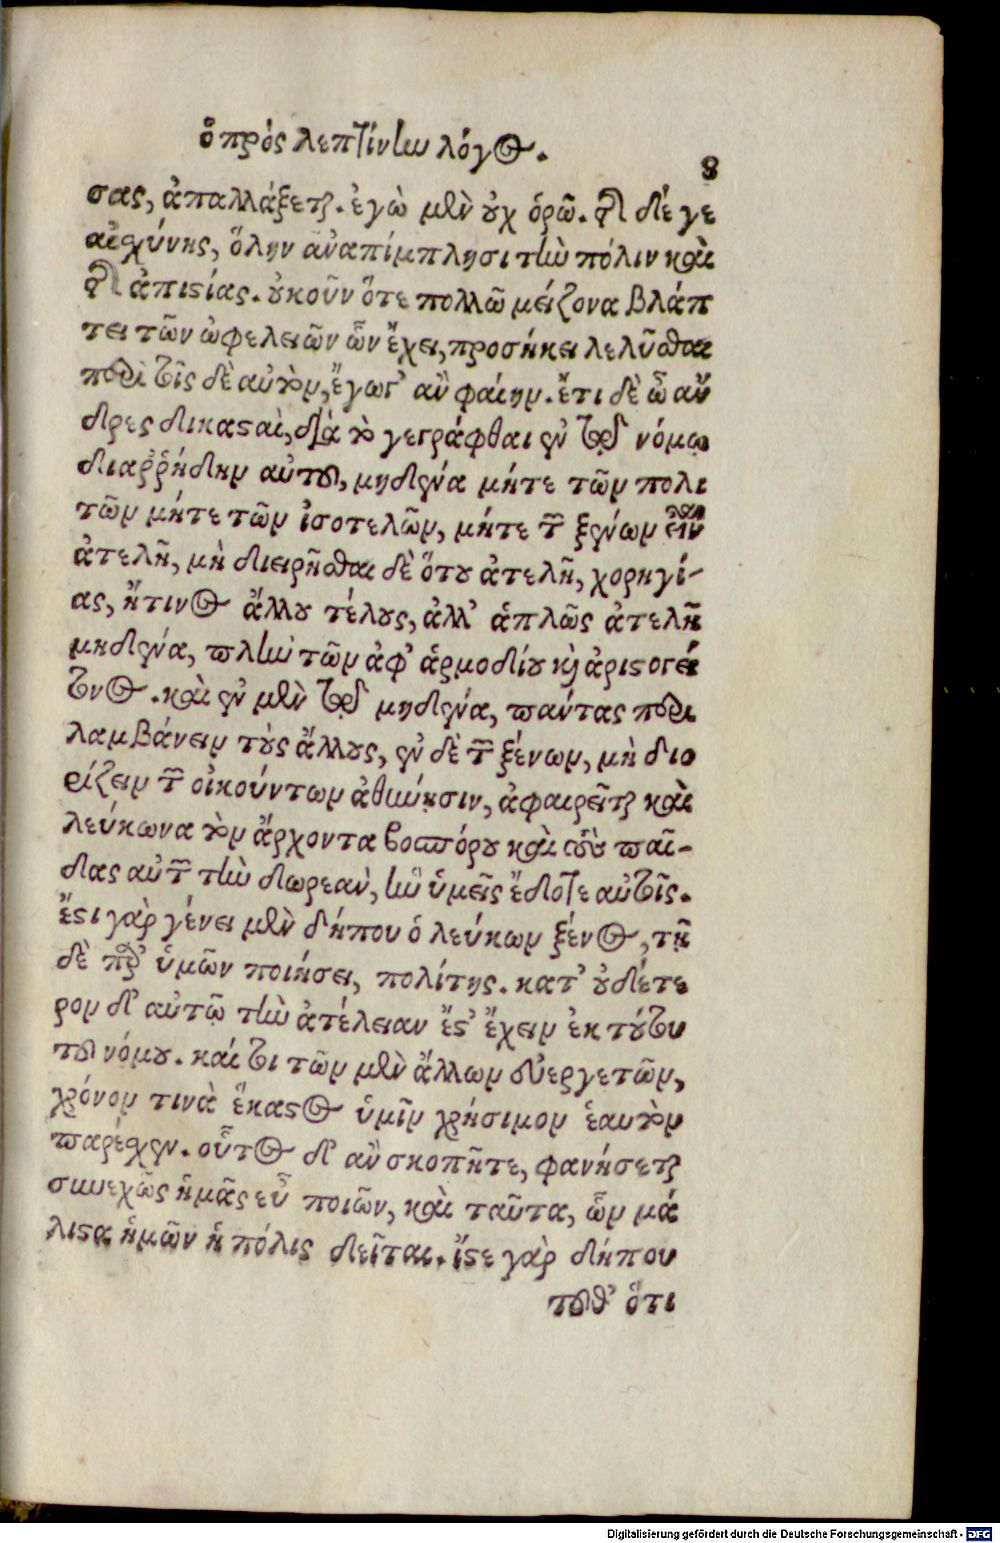 ὁ πρὸς λεπτίνην λόγος.
8
σας, ἀπαλλάξεται. ἐγὼ μὲν οὐχ ὁρῶ. τῆς δέ γε
αἰσχύνης, ὅλην ἀναπίμπλησι τὴν πόλιν καὶ
τῆς ἀπιστίας. οὐκοῦν ὅτε πολλῶ μείζονα βλάπ
τει τῶν ὠφελειῶν ὧν ἔχει, προσήκει λελύσθαι
παρὰ τοῖς δὲ αὐτὸν, ἔγωγ' ἂν φαίην. ἔτι δὲ ὦ ἄν
δρες δικασταὶ, διὰ τὸ γεγράφθαι ἐν τῷ νόμῳ
διαῤῥήδην αὐτοῦ, μηδένα μήτε τῶν πολι
τῶν μήτε τῶν ἰσοτελῶν, μήτε τῶν ξένων εἶναι
ἀτελῆ, μὴ διειρῆσθαι δὲ ὅτου ἀτελῆ, χορηγί-
ας, ἤτινος ἄλλου τέλους, ἀλλ' ἁπλῶς ἀτελῆ
μηδένα, πλὴν τῶν ἀφ' ἁρμοδίου καὶ ἀριστογεί
τονος. καὶ ἐν μὲν τῷ μηδένα, πάντας περι
λαμβάνειν τοὺς ἄλλους, ἐν δὲ τῶν ξένων, μὴ διο
ρίζειν τῶν οἰκούντων ἀθήνησιν, ἀφαιρεῖται καὶ
λεύκωνα τὸν ἄρχοντα βοσπόρου καὶ τοὺς παῖ-
δας αὐτοῦ τὴν δωρεὰν, ἣν ὑμεῖς ἔδοτε αὐτοῖς.
ἔστι γὰρ γένει μὲν δήπου ὁ λεύκων ξένος, τῇ
δὲ παρ' ὑμῶν ποιήσει, πολίτης. κατ' οὐδέτε
ρον δ' αὐτῷ τὴν ἀτέλειαν ἔστ' ἔχειν ἐκ τούτου
τοῦ νόμου. καί τοι τῶν μὲν ἄλλων εὐεργετῶν,
χρόνον τινὰ ἕκαστος ὑμῖν χρήσιμον ἑαυτὸν
παρέσχεν. οὗτος δ' ἂν σκοπῆτε, φανήσεται
συνεχῶς ἡμᾶς εὖ ποιῶν, καὶ ταῦτα, ὧν μά
λιστα ἡμῶν ἡ πόλις δεῖται. ἴστε γὰρ δήπου
τοῦθ' ὅτι
Digitalisierung gefördert durch die Deutsche Forschungsgemeinschaft - DFG